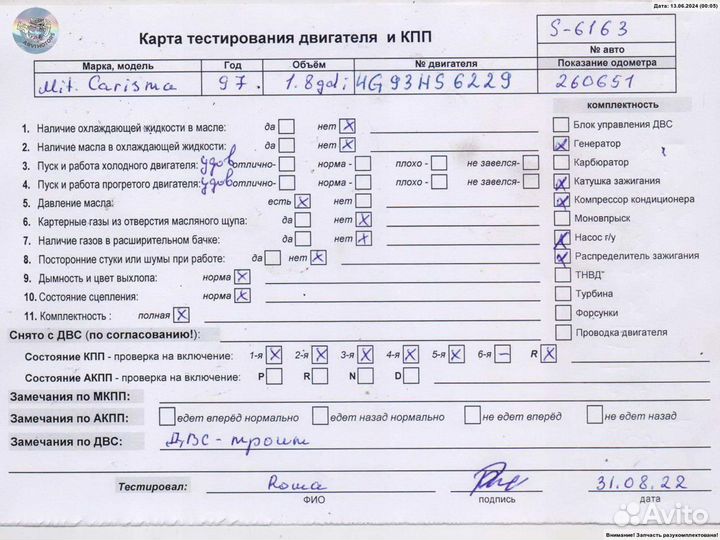 Дата: 13.06.2024 (00:05)
ARVI MOTORS
Карта тестирования двигателя и КПП
S-6163
№ авто
Марка, модель Год Объём № двигателя Показание одометра
Mit. Carisma 97. 1.8gdi 4G93HS6229 260651
комплектность
1. Наличие охлаждающей жидкости в масле: да нет X
2. Наличие масла в охлаждающей жидкости: да нет X
3. Пуск и работа холодного двигателя: удов отлично- норма - плохо - не завелся-
4. Пуск и работа прогретого двигателя: удов отлично- норма - плохо - не завелся-
5. Давление масла: есть X нет
6. Картерные газы из отверстия масляного щупа: да нет X
7. Наличие газов в расширительном бачке: да нет X
8. Посторонние стуки или шумы при работе: да нет X
9. Дымность и цвет выхлопа: норма X
10. Состояние сцепления: норма X
11. Комплектность : полная X
Блок управления ДВС
X Генератор
Карбюратор
X Катушка зажигания
X Компрессор кондиционера
Моновпрыск
X Насос г/у
X Распределитель зажигания
ТНВД
Турбина
Форсунки
Проводка двигателя
Снято с ДВС (по согласованию!):
Состояние КПП - проверка на включение: 1-я X 2-я X 3-я X 4-я X 5-я X 6-я – R X
Состояние АКПП - проверка на включение: P R N D
Замечания по МКПП:
Замечания по АКПП: едет вперёд нормально едет назад нормально не едет вперёд не едет назад
Замечания по ДВС: ДВС - троит
Тестировал: Roma 31.08.22
ФИО подпись дата
Avito
Внимание! Запчасть разукомплектована!